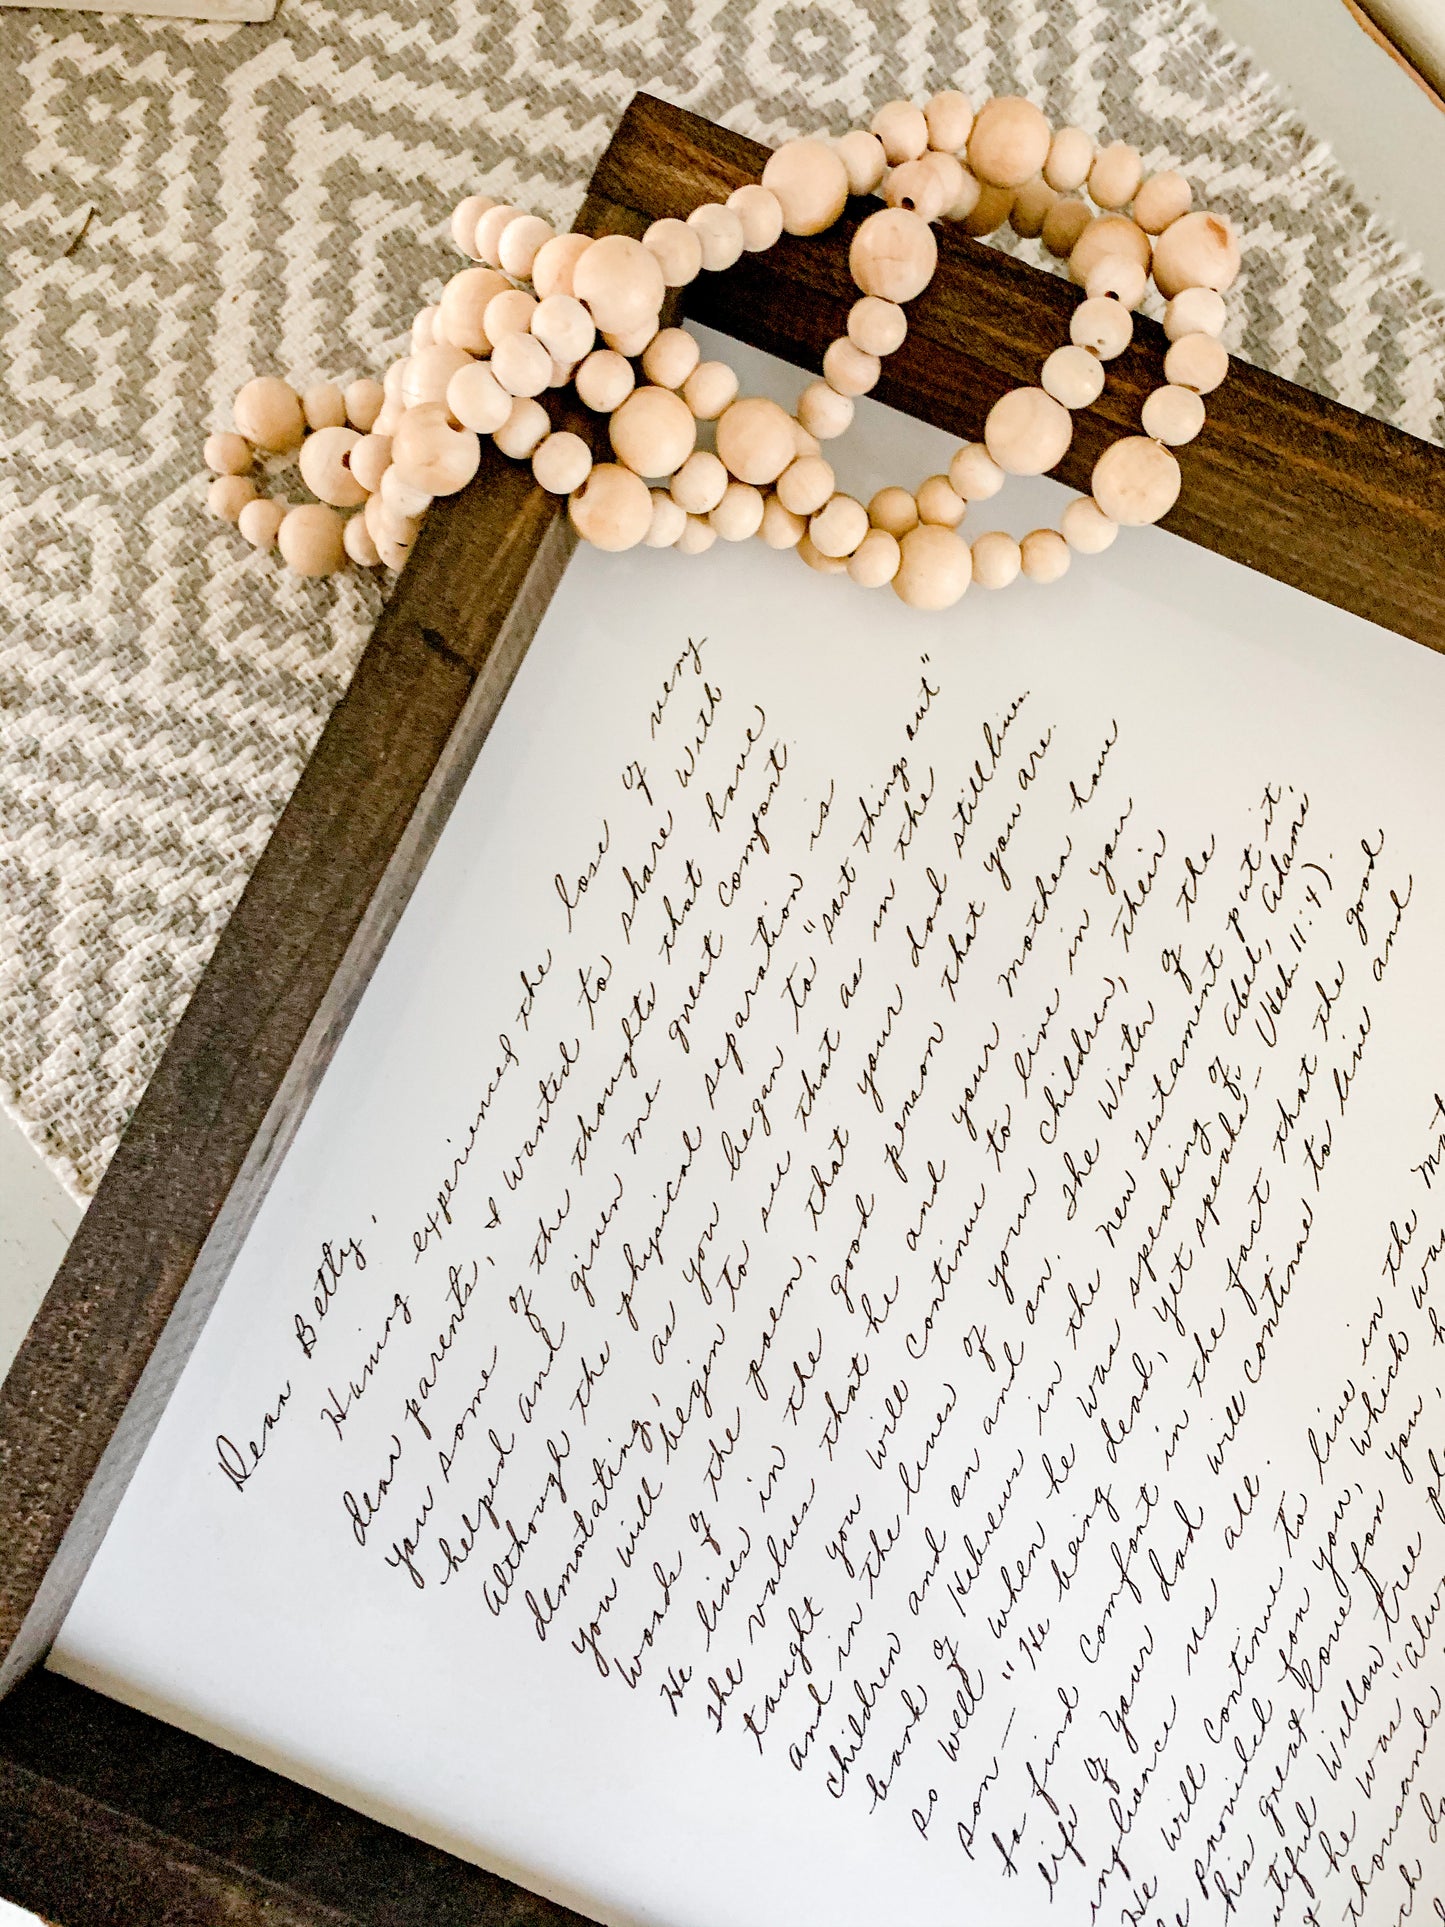 Dear Betty,
Having experienced the lose of very
dear parents, I wanted to share with
you some of the thoughts that have
helped and given me great comfort.
Although the physical separation is
devastating, as you began to "sort things out"
you will begin to see that as in the
words of the poem, that your dad still lives.
He lives in the good person that you are.
The values that he and your mother have
taught you will continue to live in you
and in the lives of your children, their
children and on and on. The Writer of the
book of Hebrews in the New Testament put it,
so well when he was speaking of Abel, Adams
son — "He being dead, yet speaks" - (Heb. 11:4).
to find comfort in the fact that the good
life of your dad will continue to live and
influence us all.
He will continue to live in the
provided for you, which was
his great love for you, h
utiful willow tree
he was "alw
thousands
ch